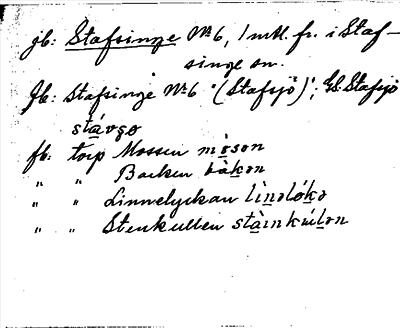 jb: Stafsinge No 6, 1 mtl. fr. i Staf-
singe sn.
Jb: Stafsinge No 6 (Stafsjö); GS. Stafsjö
stàvʂø
fb: torp Mossen mòson
" " Backen bàkøn
" " Linnelyckan lìnəlókə
" " Stenkullen stàinkúlən